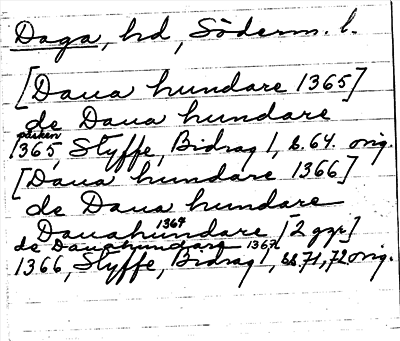 Daga, hd, Söderm. l.
[Daua hundare 1365]
de Daua hundare
påsken
1365, Styffe, Bidrag 1, s. 64. orig.
[Daua hundare 1366]
de Daua hundare
1367
Dauahundare [2 ggr]
de Dauahundare 1367
1366, Styffe, Bidrag 1, ss. 71, 72 orig.